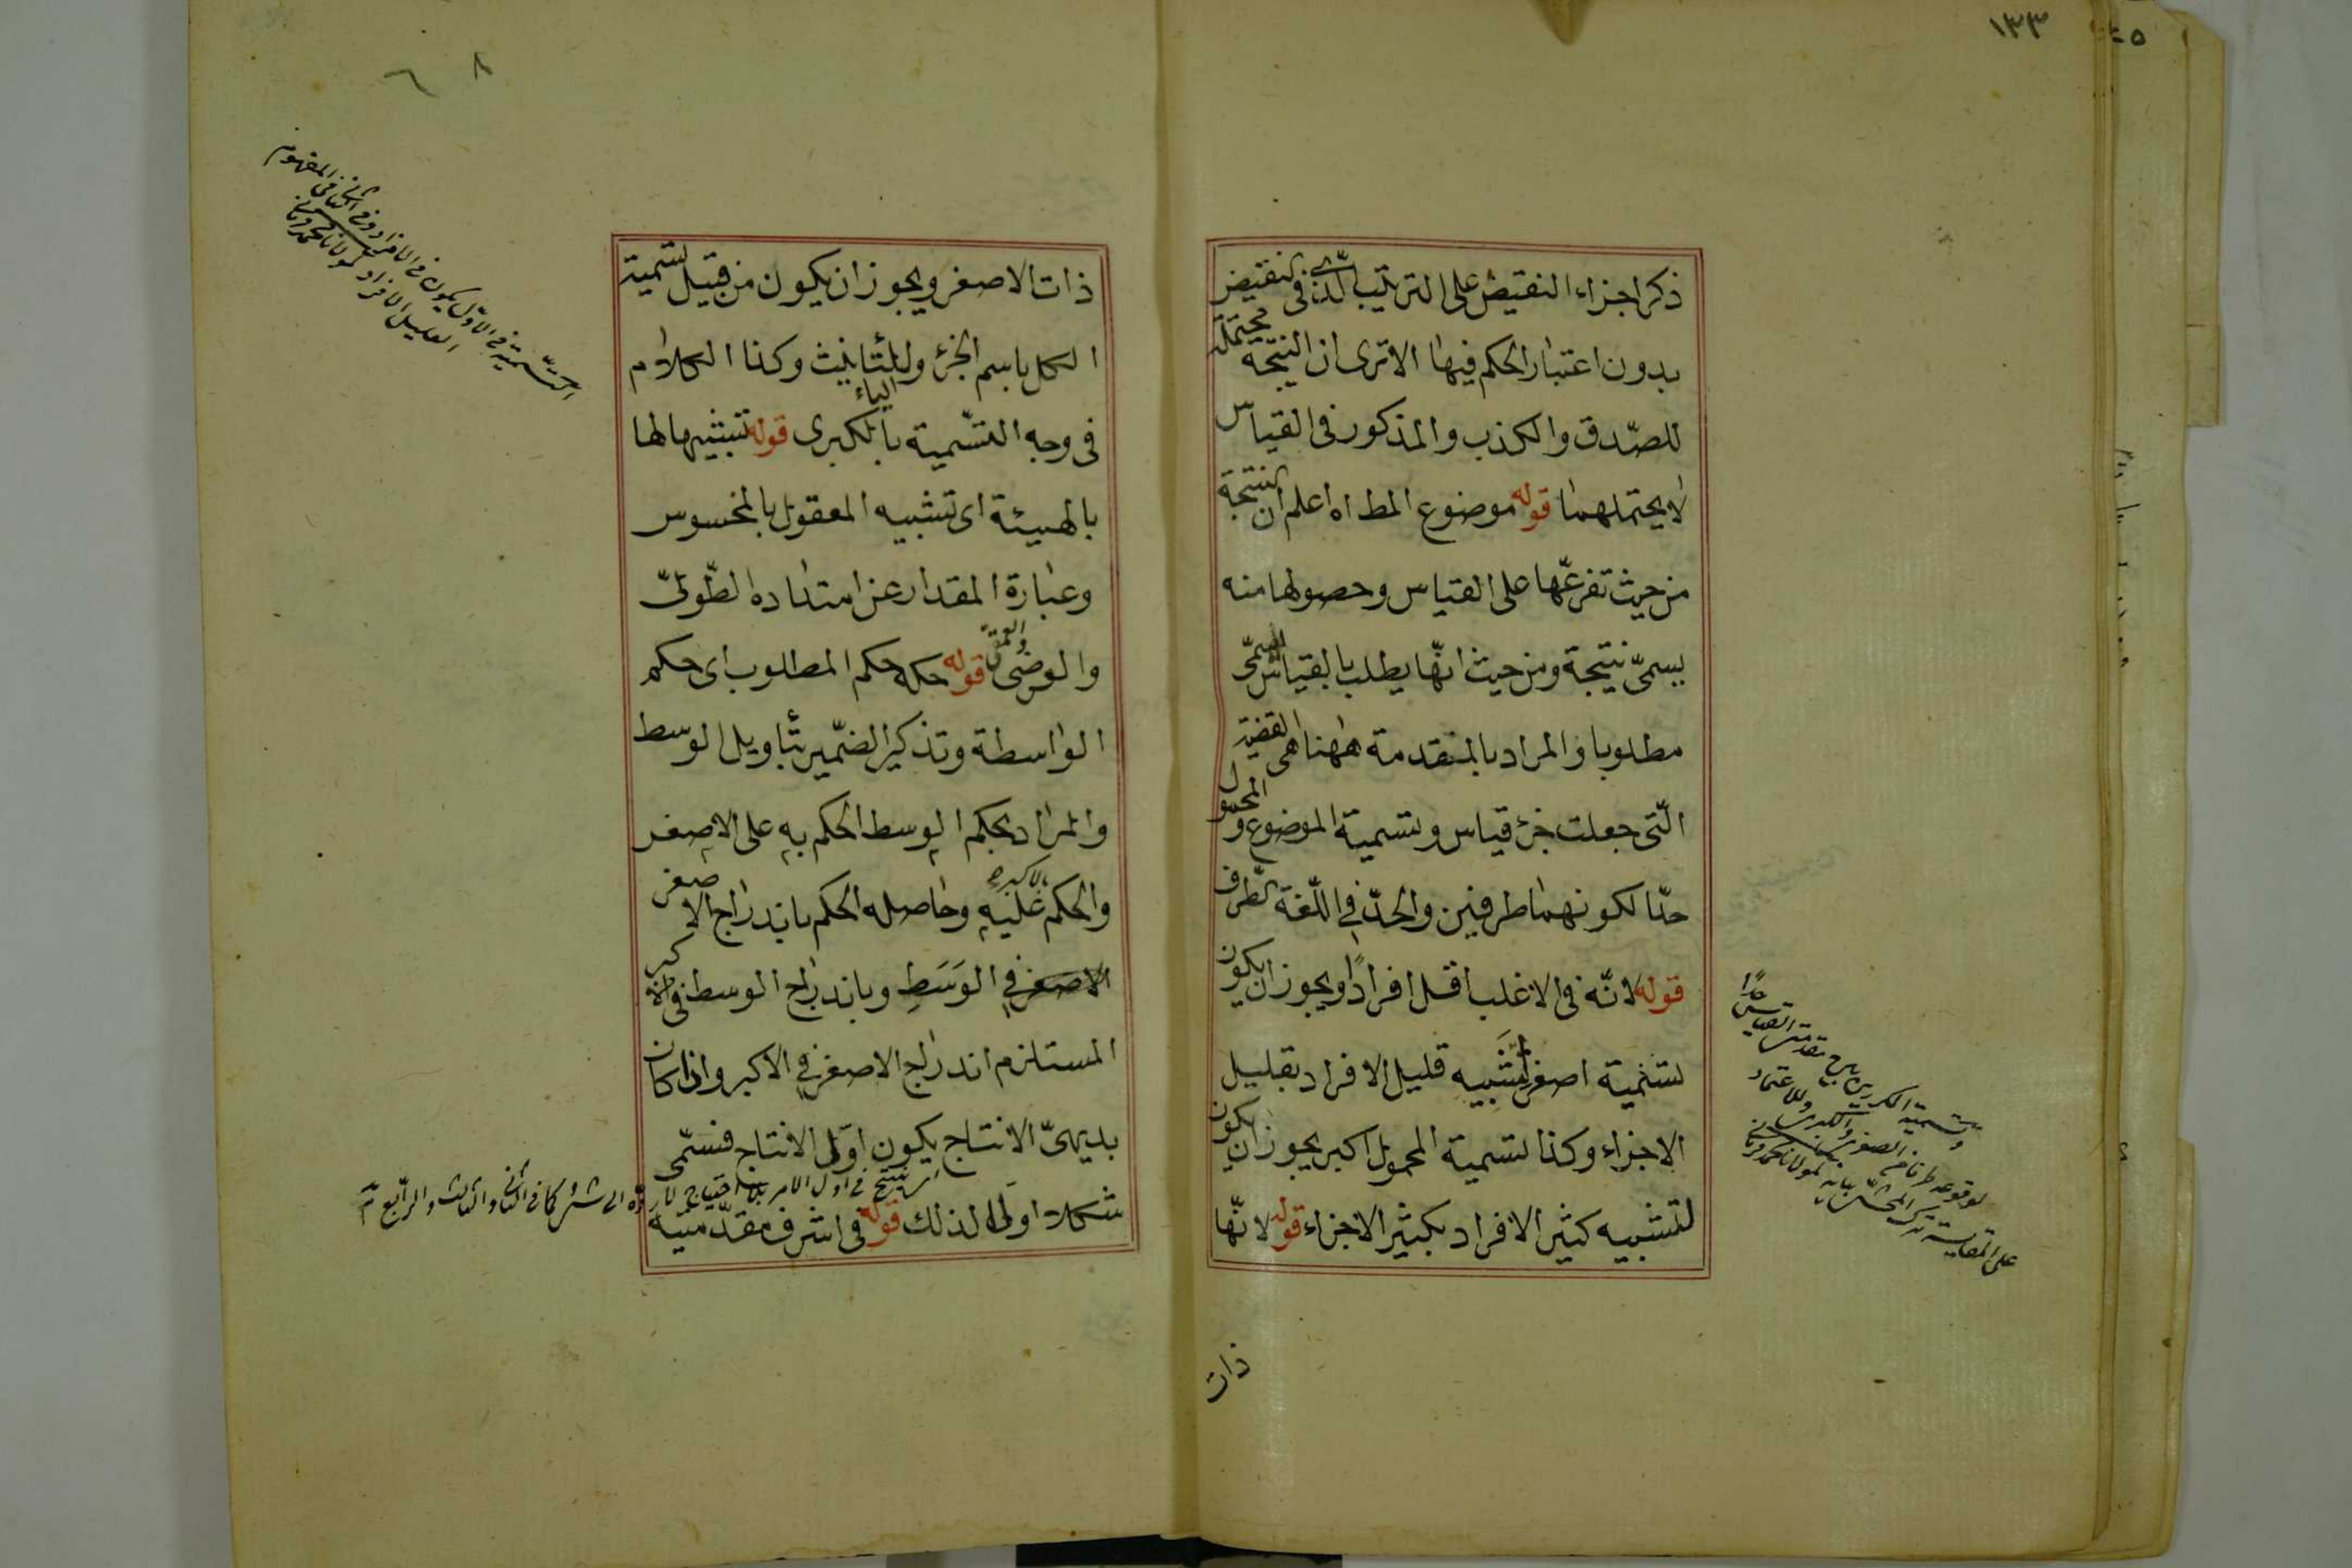 ١٣٣
ذكر اجزاء النقيض على الترتيب الذى فى النقيض
بدون اعتبار الحكم فيها الا ترى ان النتيجة محتملة
للصّدق والكذب والمذكور فى القياس
لا يحتملهما قوله موضوع المط اه اعلم ان النتيجة
من حيث تفرعّها على القياس وحصولها منه
يسمىّ نتيجة ومن حيث انّها يطلب بالقياس يسمىّ
مطلوبا والمراد بالمقدمة ههنا هى القضية
الّتى جعلت جزء قياس وتسمية الموضوع والمحمول
حدّا لكونهما طرفين والحدّ فى اللّغة الطّرف
قوله لانّه فى الاغلب اقل افرادًا ويجوز ان يكون
تسمية اصغر لتشبيه قليل الافراد بقليل
الاجزاء وكذا تسمية المحمول اكبر يجوز ان يكون
لتشبيه كثير الافراد بكثير الاجزاء قوله لانّها
ذات
وتسمية المكرر
لوقوعه طرفا فى الصغرى والكبرى
ذات الاصغر ويجوز ان يكون من قبيل تسمية
الكل باسم الجزء وللتأنيث وكذا الكلام
فى وجه التسّمية بالكبرى قوله تشبيها لها
الياء
بالهيئة اى تشبيه المعقول بالمحسوس
وعبارة المقدار عن امتداده الطّولىّ
والعرضى والعمقى قوله حكمه حكم المطلوب اى حكم
الواسطة وتذكير الضمّير بتأويل الوسط
والمراد بحكم الوسط الحكم به على الاصغر
والحكم عليه بالاكبر وحاصله الحكم باندراج الاصغر
الاصغر فى الوَسَطِ وباندراج الوسط فى الاكبر
المستلزم اندراج الاصغر فى الاكبر واذا كان
بديهىّ الانتاج يكون اوّل الانتاج فسمّى
شكلا اولا لذلك قوله فى اشرف مقدّمتيه
اى ينتج فى اول الامر بلا احتياج الى شئ كما فى الثانى والثالث والرّابع
التسّمية فى الاوّل يكون فى الافراد وفى الثانى فى المفهوم
القليل الافراد